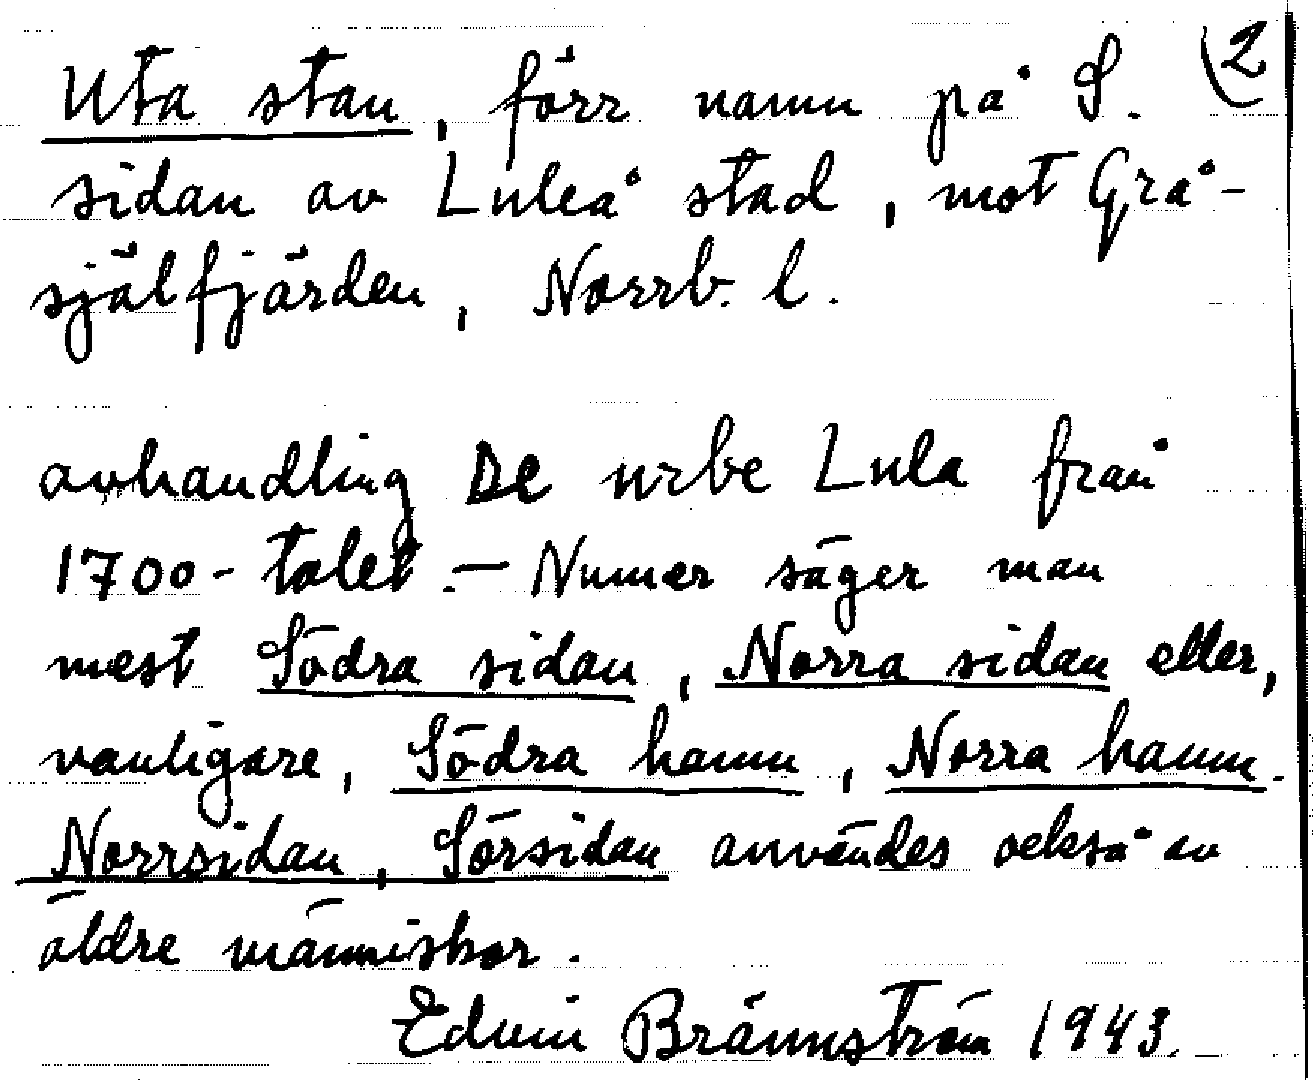 Uta stan, förr namn på S. (2
sidan av Luleå stad, mot Grå-
själfjärden, Norrb. l.
avhandling De urbe Lula från
1700-talet. – Numer säger man
mest Södra sidan, Norra sidan eller,
vanligare, Södra hamn, Norra hamn.
Norrsidan, Sörsidan användes också av
äldre människor.
Edvin Brännström 1943.